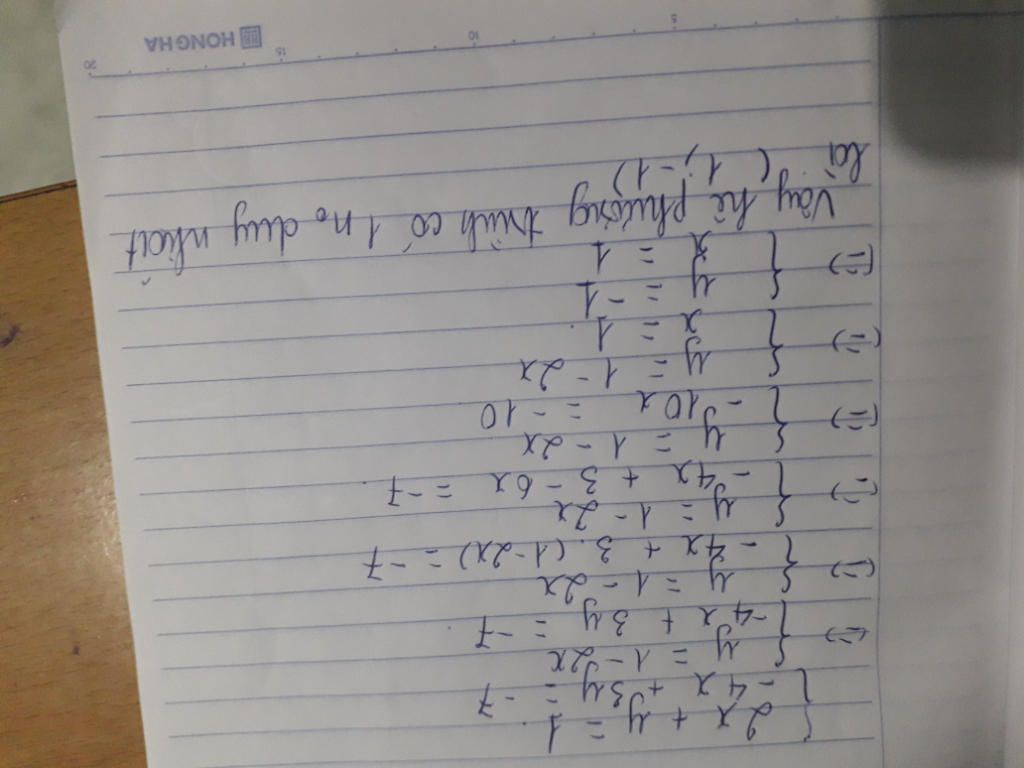 { 2x + y = 1
- 4x + 3y = - 7
(=) { y = 1 - 2x
-4x + 3y = -7
(=) { y = 1 - 2x
- 4x + 3.(1-2x) = -7
(=) { y = 1 - 2x
- 4x + 3 - 6x = -7
(=) { y = 1 - 2x
- 10x = - 10
(=) { y = 1 - 2x
x = 1
(=) { y = - 1
x = 1
Vậy hệ phương trình có 1 no duy nhất
là (1; -1)
HONG HA
5 10 15 20